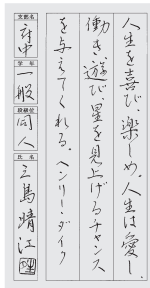 人生を喜び、楽しめ。人生は愛し、
働き、遊び、星を見上げるチャンス
を与えてくれる。ヘンリー・ダイク
支部名
府中
学年
一般
段級位
同人
氏名
三馬晴江